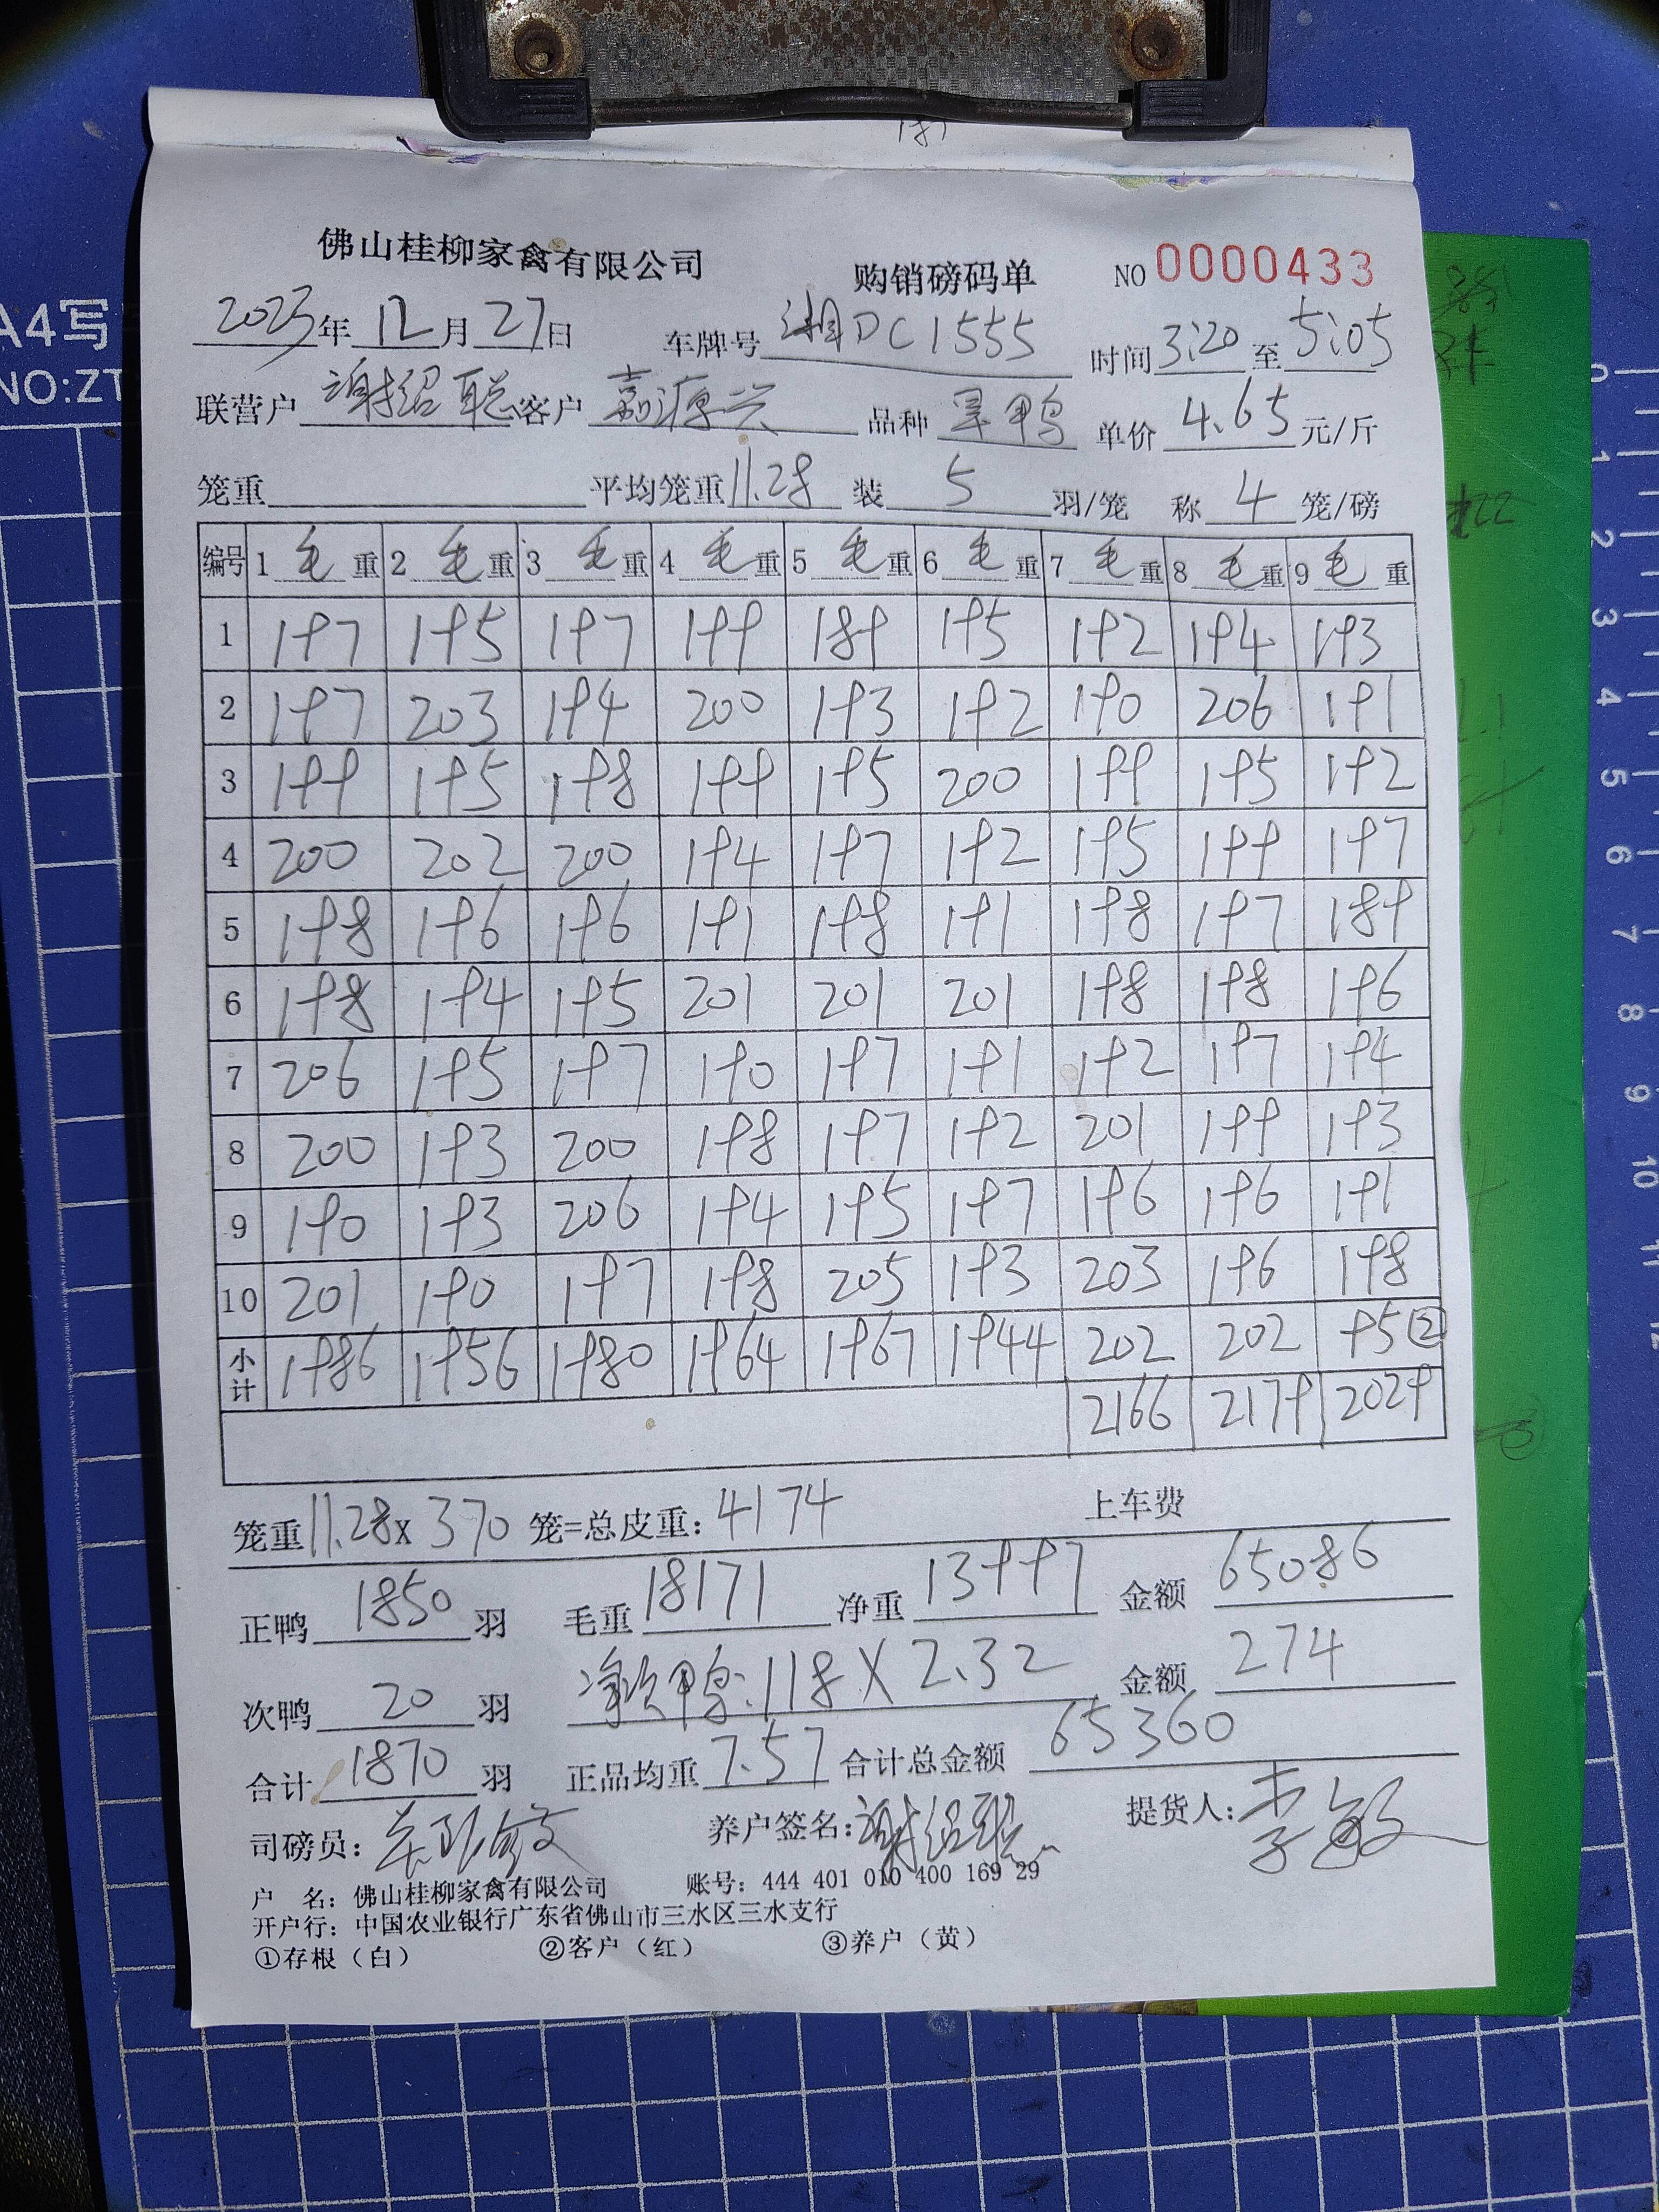 佛山桂柳家禽有限公司 购销磅码单 NO 0000433
2023年 12月 27日 车牌号 湘DC1555 时间 3:20 至 5:05
联营户 谢绍聪 客户 嘉源兴 品种 旱鸭 单价 4.65 元/斤
笼重 平均笼重 11.28 装 5 羽/笼 称 4 笼/磅
编号 1 毛 重 2 毛 重 3 毛 重 4 毛 重 5 毛 重 6 毛 重 7 毛 重 8 毛 重 9 毛 重
1 197 195 197 199 189 195 192 194 193
2 197 203 194 200 193 192 190 206 191
3 199 195 198 199 195 200 199 195 192
4 200 202 200 194 197 192 195 199 197
5 198 196 196 191 198 191 198 197 189
6 198 194 195 201 201 201 198 198 196
7 206 195 197 190 197 191 192 197 194
8 200 193 200 198 197 192 201 199 193
9 190 193 206 194 195 197 196 196 191
10 201 190 197 198 205 193 203 196 198
小计 1986 1956 1980 1964 1967 1944 202 202 95②
2166 2179 2029
笼重 11.28 x 370 笼=总皮重: 4174 上车费
正鸭 1850 羽 毛重 18171 净重 13997 金额 65086
次鸭 20 羽 净次鸭: 118 X 2.32 金额 274
合计 1870 羽 正品均重 7.57 合计总金额 65360
司磅员: 养户签名: 谢绍聪 提货人: 李敏
户 名: 佛山桂柳家禽有限公司 账号: 444 401 010 400 169 29
开户行: 中国农业银行广东省佛山市三水区三水支行
①存根（白） ②客户（红） ③养户（黄）